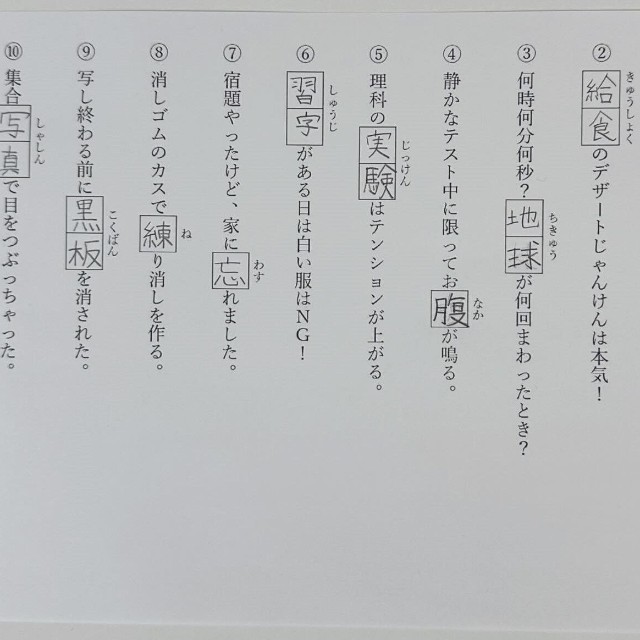 ② 給食のデザートじゃんけんは本気！
きゅうしょく
③ 何時何分何秒？地球が何回まわったとき？
ちきゅう
④ 静かなテスト中に限ってお腹が鳴る。
なか
⑤ 理科の実験はテンションが上がる。
じっけん
⑥ 習字がある日は白い服はNG！
しゅうじ
⑦ 宿題やったけど、家に忘れました。
わす
⑧ 消しゴムのカスで練り消しを作る。
ね
⑨ 写し終わる前に黒板を消された。
こくばん
⑩ 集合写真で目をつぶっちゃった。
しゃしん